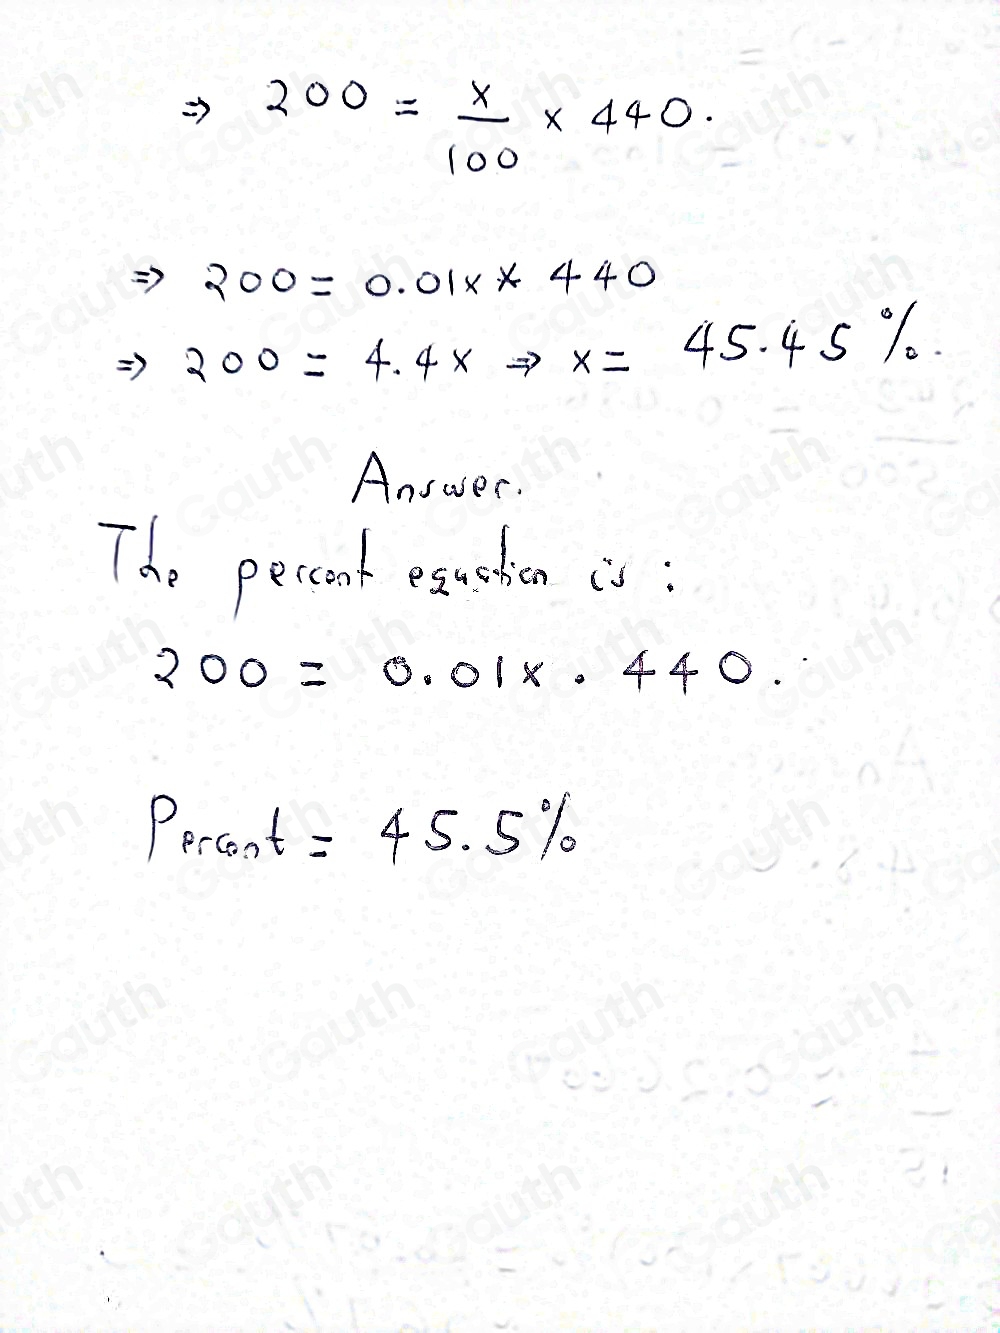 ⇒ 200 = x/100 × 440.
⇒ 200 = 0.01x × 440
⇒ 200 = 4.4x ⇒ x = 45.45%.
Answer.
The percent equation is :
200 = 0.01x . 440.
Percent = 45.5%